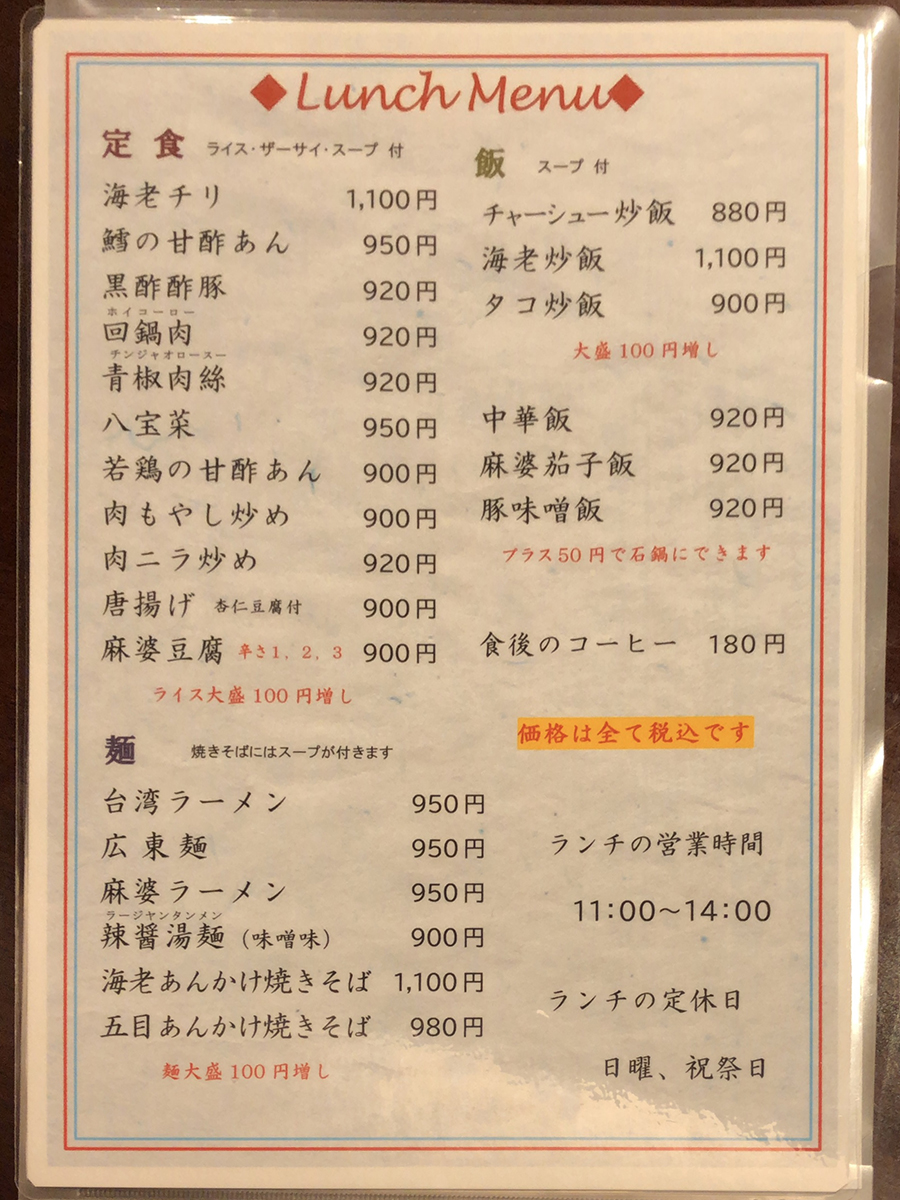 ◆Lunch Menu◆
定食 ライス・ザーサイ・スープ 付
海老チリ 1,100円
鱈の甘酢あん 950円
黒酢酢豚 920円
ホイコーロー
回鍋肉 920円
チンジャオロースー
青椒肉絲 920円
八宝菜 950円
若鶏の甘酢あん 900円
肉もやし炒め 900円
肉ニラ炒め 920円
唐揚げ 杏仁豆腐付 900円
麻婆豆腐 辛さ1,2,3 900円
ライス大盛100円増し
麺 焼きそばにはスープが付きます
台湾ラーメン 950円
広東麺 950円
麻婆ラーメン 950円
ラージャンタンメン
辣醤湯麺(味噌味) 900円
海老あんかけ焼きそば 1,100円
五目あんかけ焼きそば 980円
麺大盛100円増し
飯 スープ 付
チャーシュー炒飯 880円
海老炒飯 1,100円
タコ炒飯 900円
大盛100円増し
中華飯 920円
麻婆茄子飯 920円
豚味噌飯 920円
プラス50円で石鍋にできます
食後のコーヒー 180円
価格は全て税込です
ランチの営業時間
11:00～14:00
ランチの定休日
日曜、祝祭日